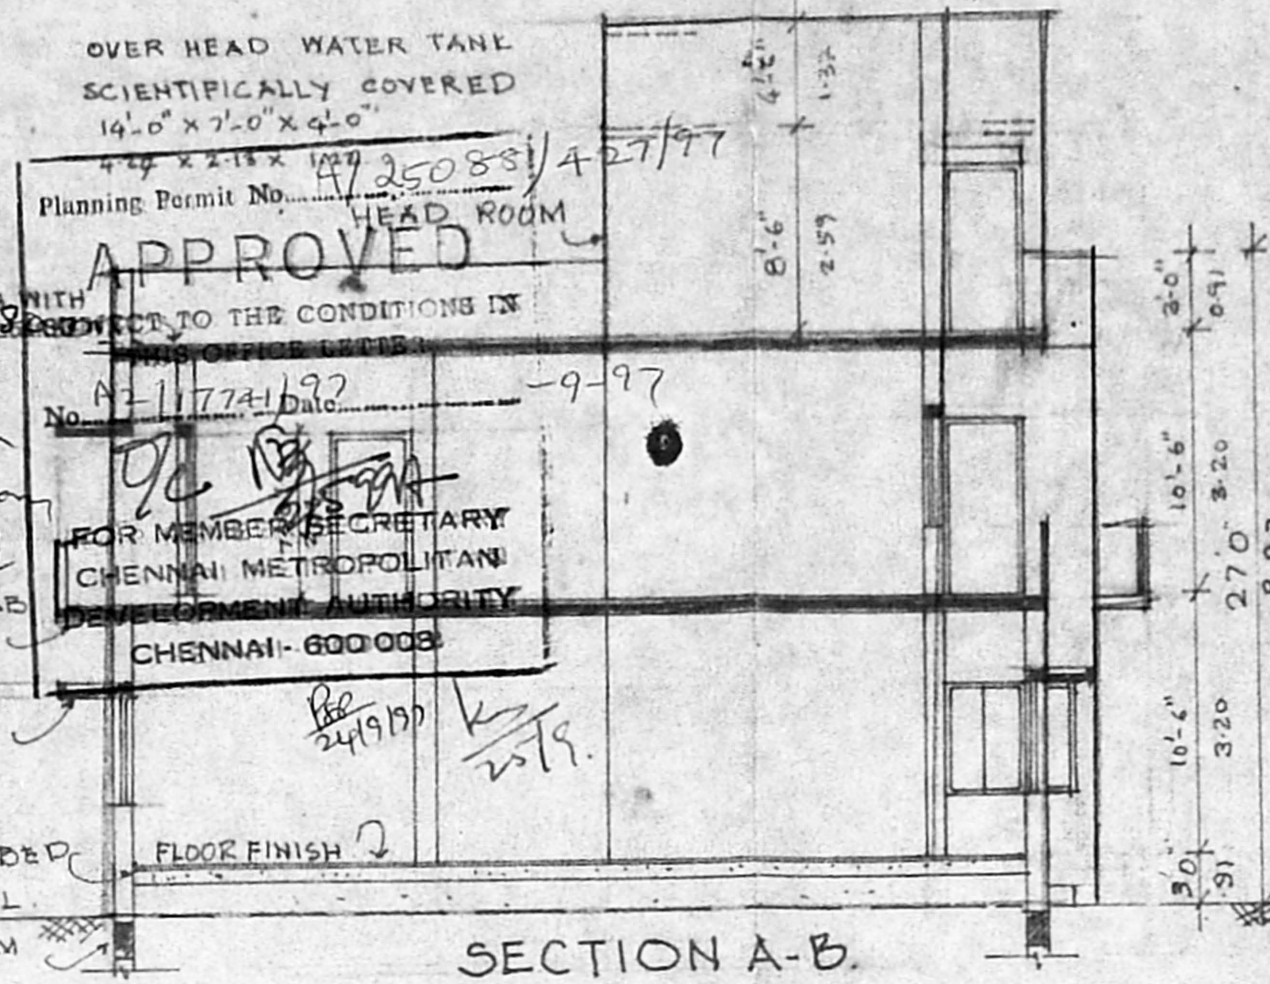 OVER HEAD WATER TANK
SCIENTIFICALLY COVERED
14'-0" X 7'-0" X 4'-0"
4.27 x 2.13 x 1.22
Planning Permit No. 25088/427/97
HEAD ROOM
APPROVED
WITH
SUBJECT TO THE CONDITIONS IN
THIS OFFICE LETTER
No. A2/17741/97 Date -9-97
FOR MEMBER SECRETARY
CHENNAI METROPOLITAN
DEVELOPMENT AUTHORITY
CHENNAI - 600 008.
24/9/97
25/9.
BED
FLOOR FINISH
SECTION A-B.
1.37
8'-6"
2.59
3'-0"
0.91
10'-6"
3.20
27'0"
10'-6"
3.20
3'0"
.91